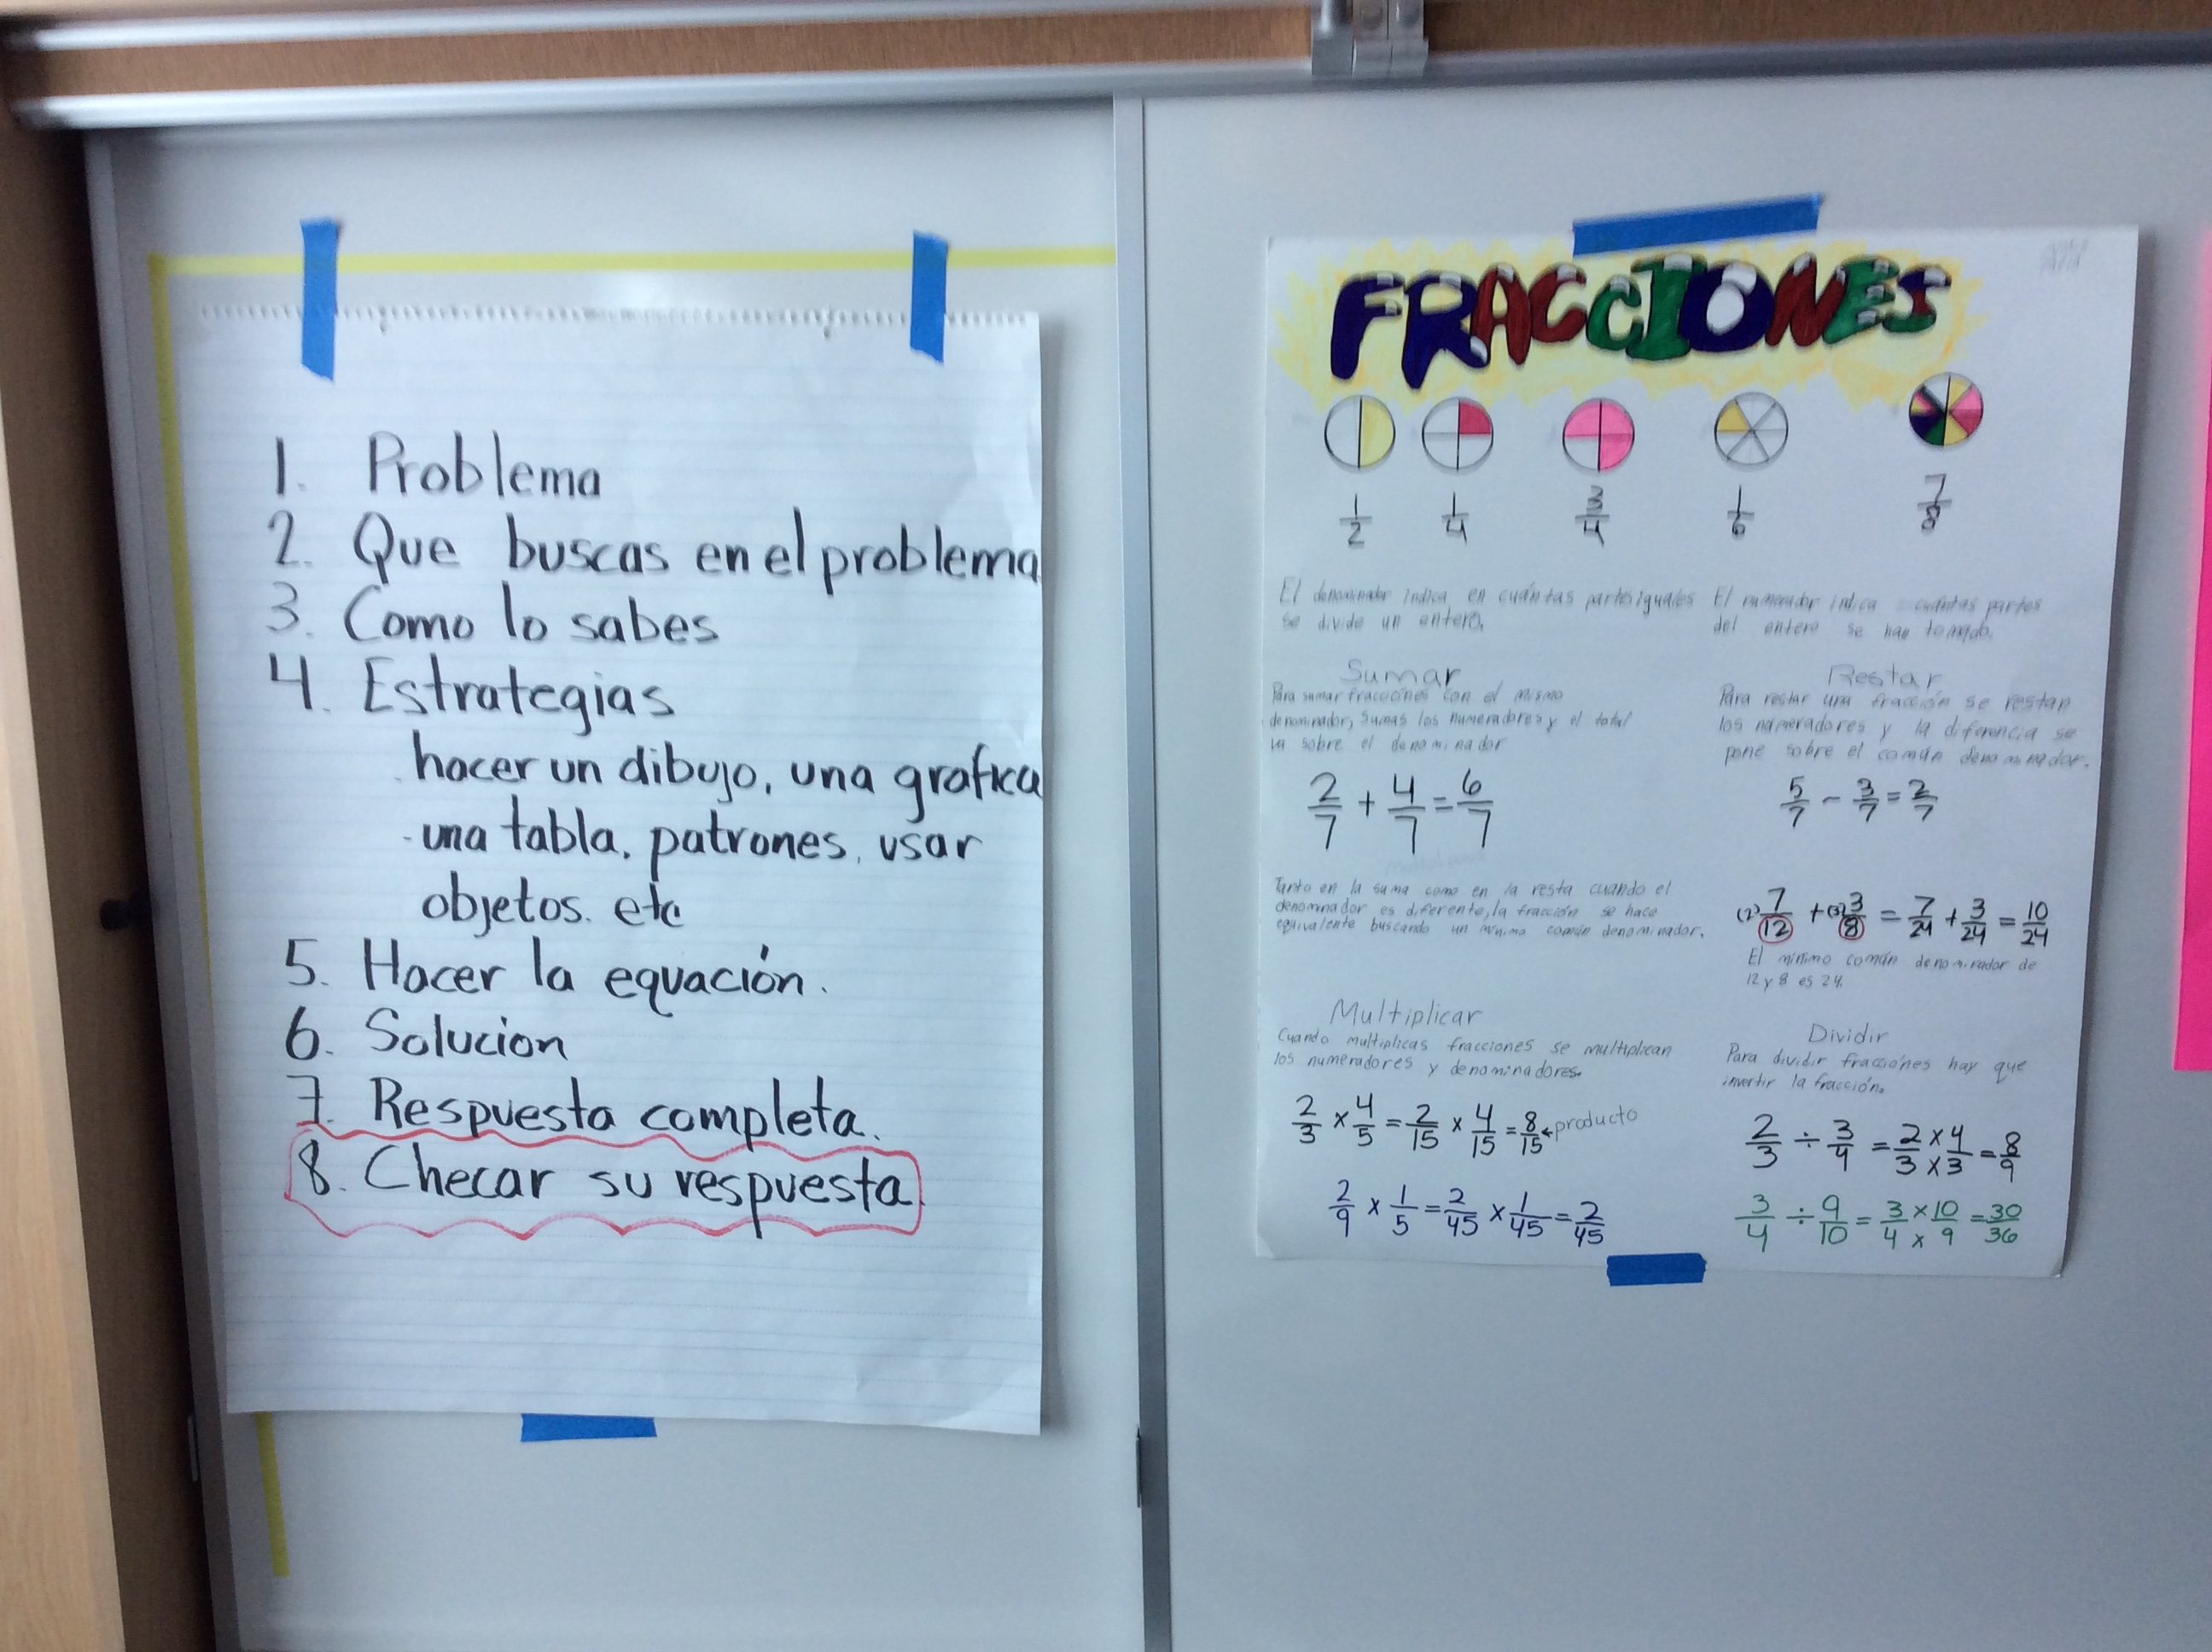 1. Problema
2. Que buscas en el problema
3. Como lo sabes
4. Estrategias
hacer un dibujo, una grafica
una tabla, patrones, usar
objetos. etc
5. Hacer la equación.
6. Solucion
7. Respuesta completa.
8. Checar su respuesta.
FRACCIONES
1/2 1/4 3/4 1/6 7/8
El denominador indica en cuántas partes iguales
se divide un entero.
El numerador indica cuántas partes
del entero se han tomado.
Sumar
Para sumar fracciones con el mismo
denominador, sumas los numeradores y el total
va sobre el denominador
2/7 + 4/7 = 6/7
Restar
Para restar una fracción se restan
los numeradores y la diferencia se
pone sobre el común denominador.
5/7 - 3/7 = 2/7
Tanto en la suma como en la resta cuando el
denominador es diferente, la fracción se hace
equivalente buscando un mínimo común denominador.
(2) 7/12 + (3) 3/8 = 7/24 + 3/24 = 10/24
El mínimo común denominador de
12 y 8 es 24.
Multiplicar
Cuando multiplicas fracciones se multiplican
los numeradores y denominadores.
2/3 x 4/5 = 2/15 x 4/15 = 8/15 ← producto
2/9 x 1/5 = 2/45 x 1/45 = 2/45
Dividir
Para dividir fracciónes hay que
invertir la fracción.
2/3 ÷ 3/4 = 2/3 x x 4/3 = 8/9
3/4 ÷ 9/10 = 3/4 x x 10/9 = 30/36